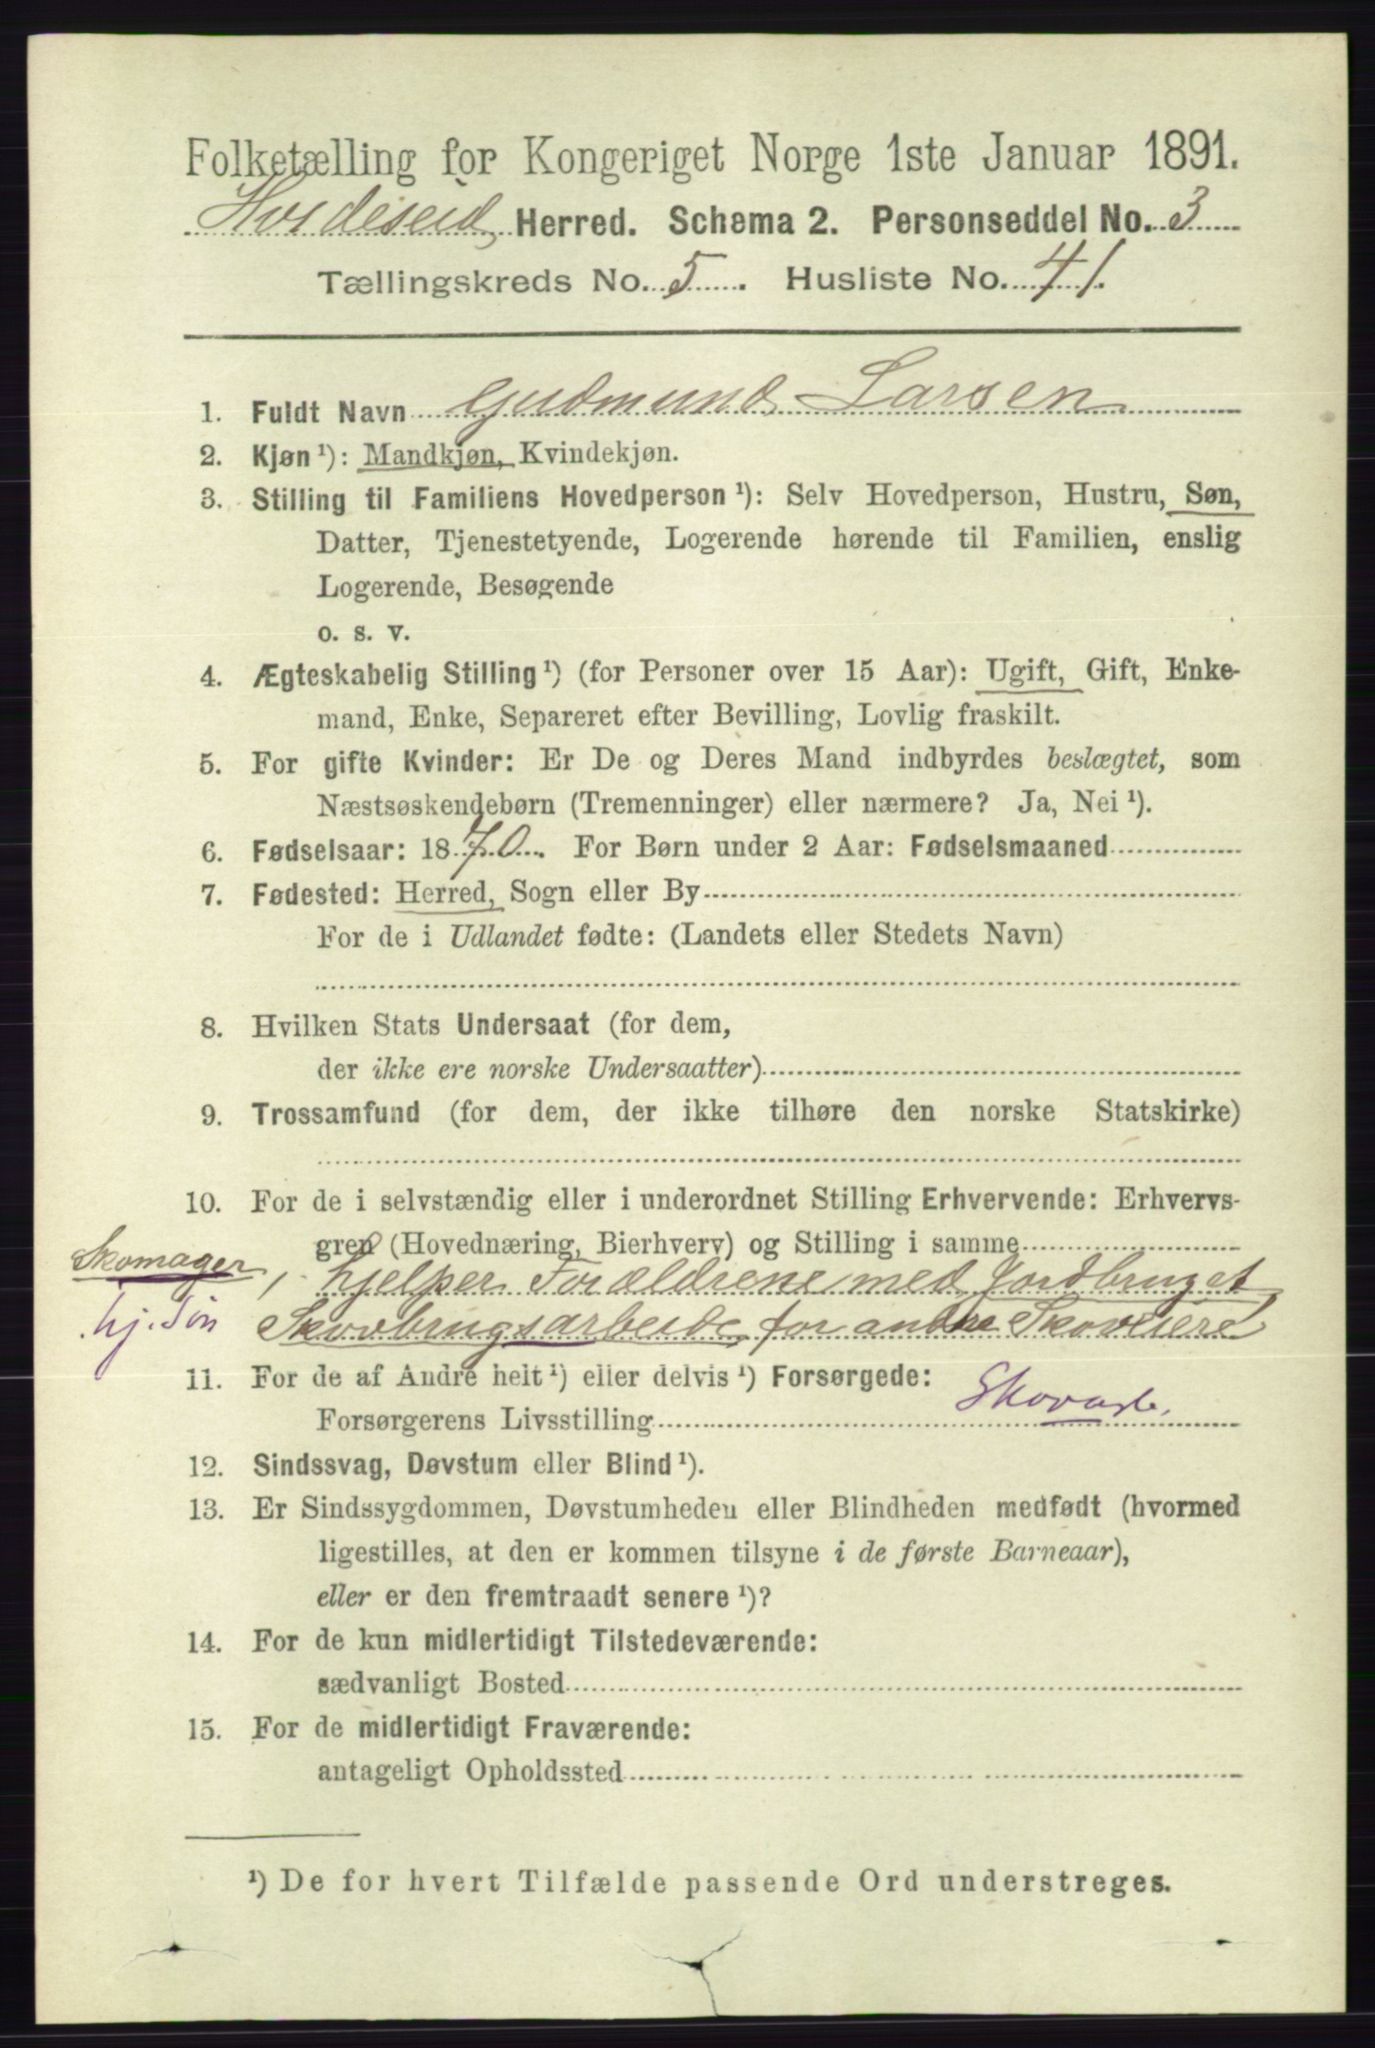 Folketælling for Kongeriget Norge 1ste Januar 1891.
Hvideseid Herred. Schema 2. Personseddel No. 3
Tællingskreds No. 5. Husliste No. 41.
1. Fuldt Navn Gudmund Larsen
2. Kjøn ¹): Mandkjøn, Kvindekjøn.
3. Stilling til Familiens Hovedperson ¹): Selv Hovedperson, Hustru, Søn,
Datter, Tjenestetyende, Logerende hørende til Familien, enslig
Logerende, Besøgende
o. s. v.
4. Ægteskabelig Stilling ¹) (for Personer over 15 Aar): Ugift, Gift, Enke-
mand, Enke, Separeret efter Bevilling, Lovlig fraskilt.
5. For gifte Kvinder: Er De og Deres Mand indbyrdes beslægtet, som
Næstsøskendebørn (Tremenninger) eller nærmere? Ja, Nei ¹).
6. Fødselsaar: 1870. For Børn under 2 Aar: Fødselsmaaned
7. Fødested: Herred, Sogn eller By
For de i Udlandet fødte: (Landets eller Stedets Navn)
8. Hvilken Stats Undersaat (for dem,
der ikke ere norske Undersaatter)
9. Trossamfund (for dem, der ikke tilhøre den norske Statskirke)
10. For de i selvstændig eller i underordnet Stilling Erhvervende: Erhvervs-
gren (Hovednæring, Bierhverv) og Stilling i samme
Skomager, hjelper Forældrene med Jordbruget
hj. Søn Skovbrugsarbeide for andre Skoveiere
11. For de af Andre helt ¹) eller delvis ¹) Forsørgede:
Forsørgerens Livsstilling Skovarb.
12. Sindssvag, Døvstum eller Blind ¹).
13. Er Sindssygdommen, Døvstumheden eller Blindheden medfødt (hvormed
ligestilles, at den er kommen tilsyne i de første Barneaar),
eller er den fremtraadt senere ¹)?
14. For de kun midlertidigt Tilstedeværende:
sædvanligt Bosted
15. For de midlertidigt Fraværende:
antageligt Opholdssted
¹) De for hvert Tilfælde passende Ord understreges.